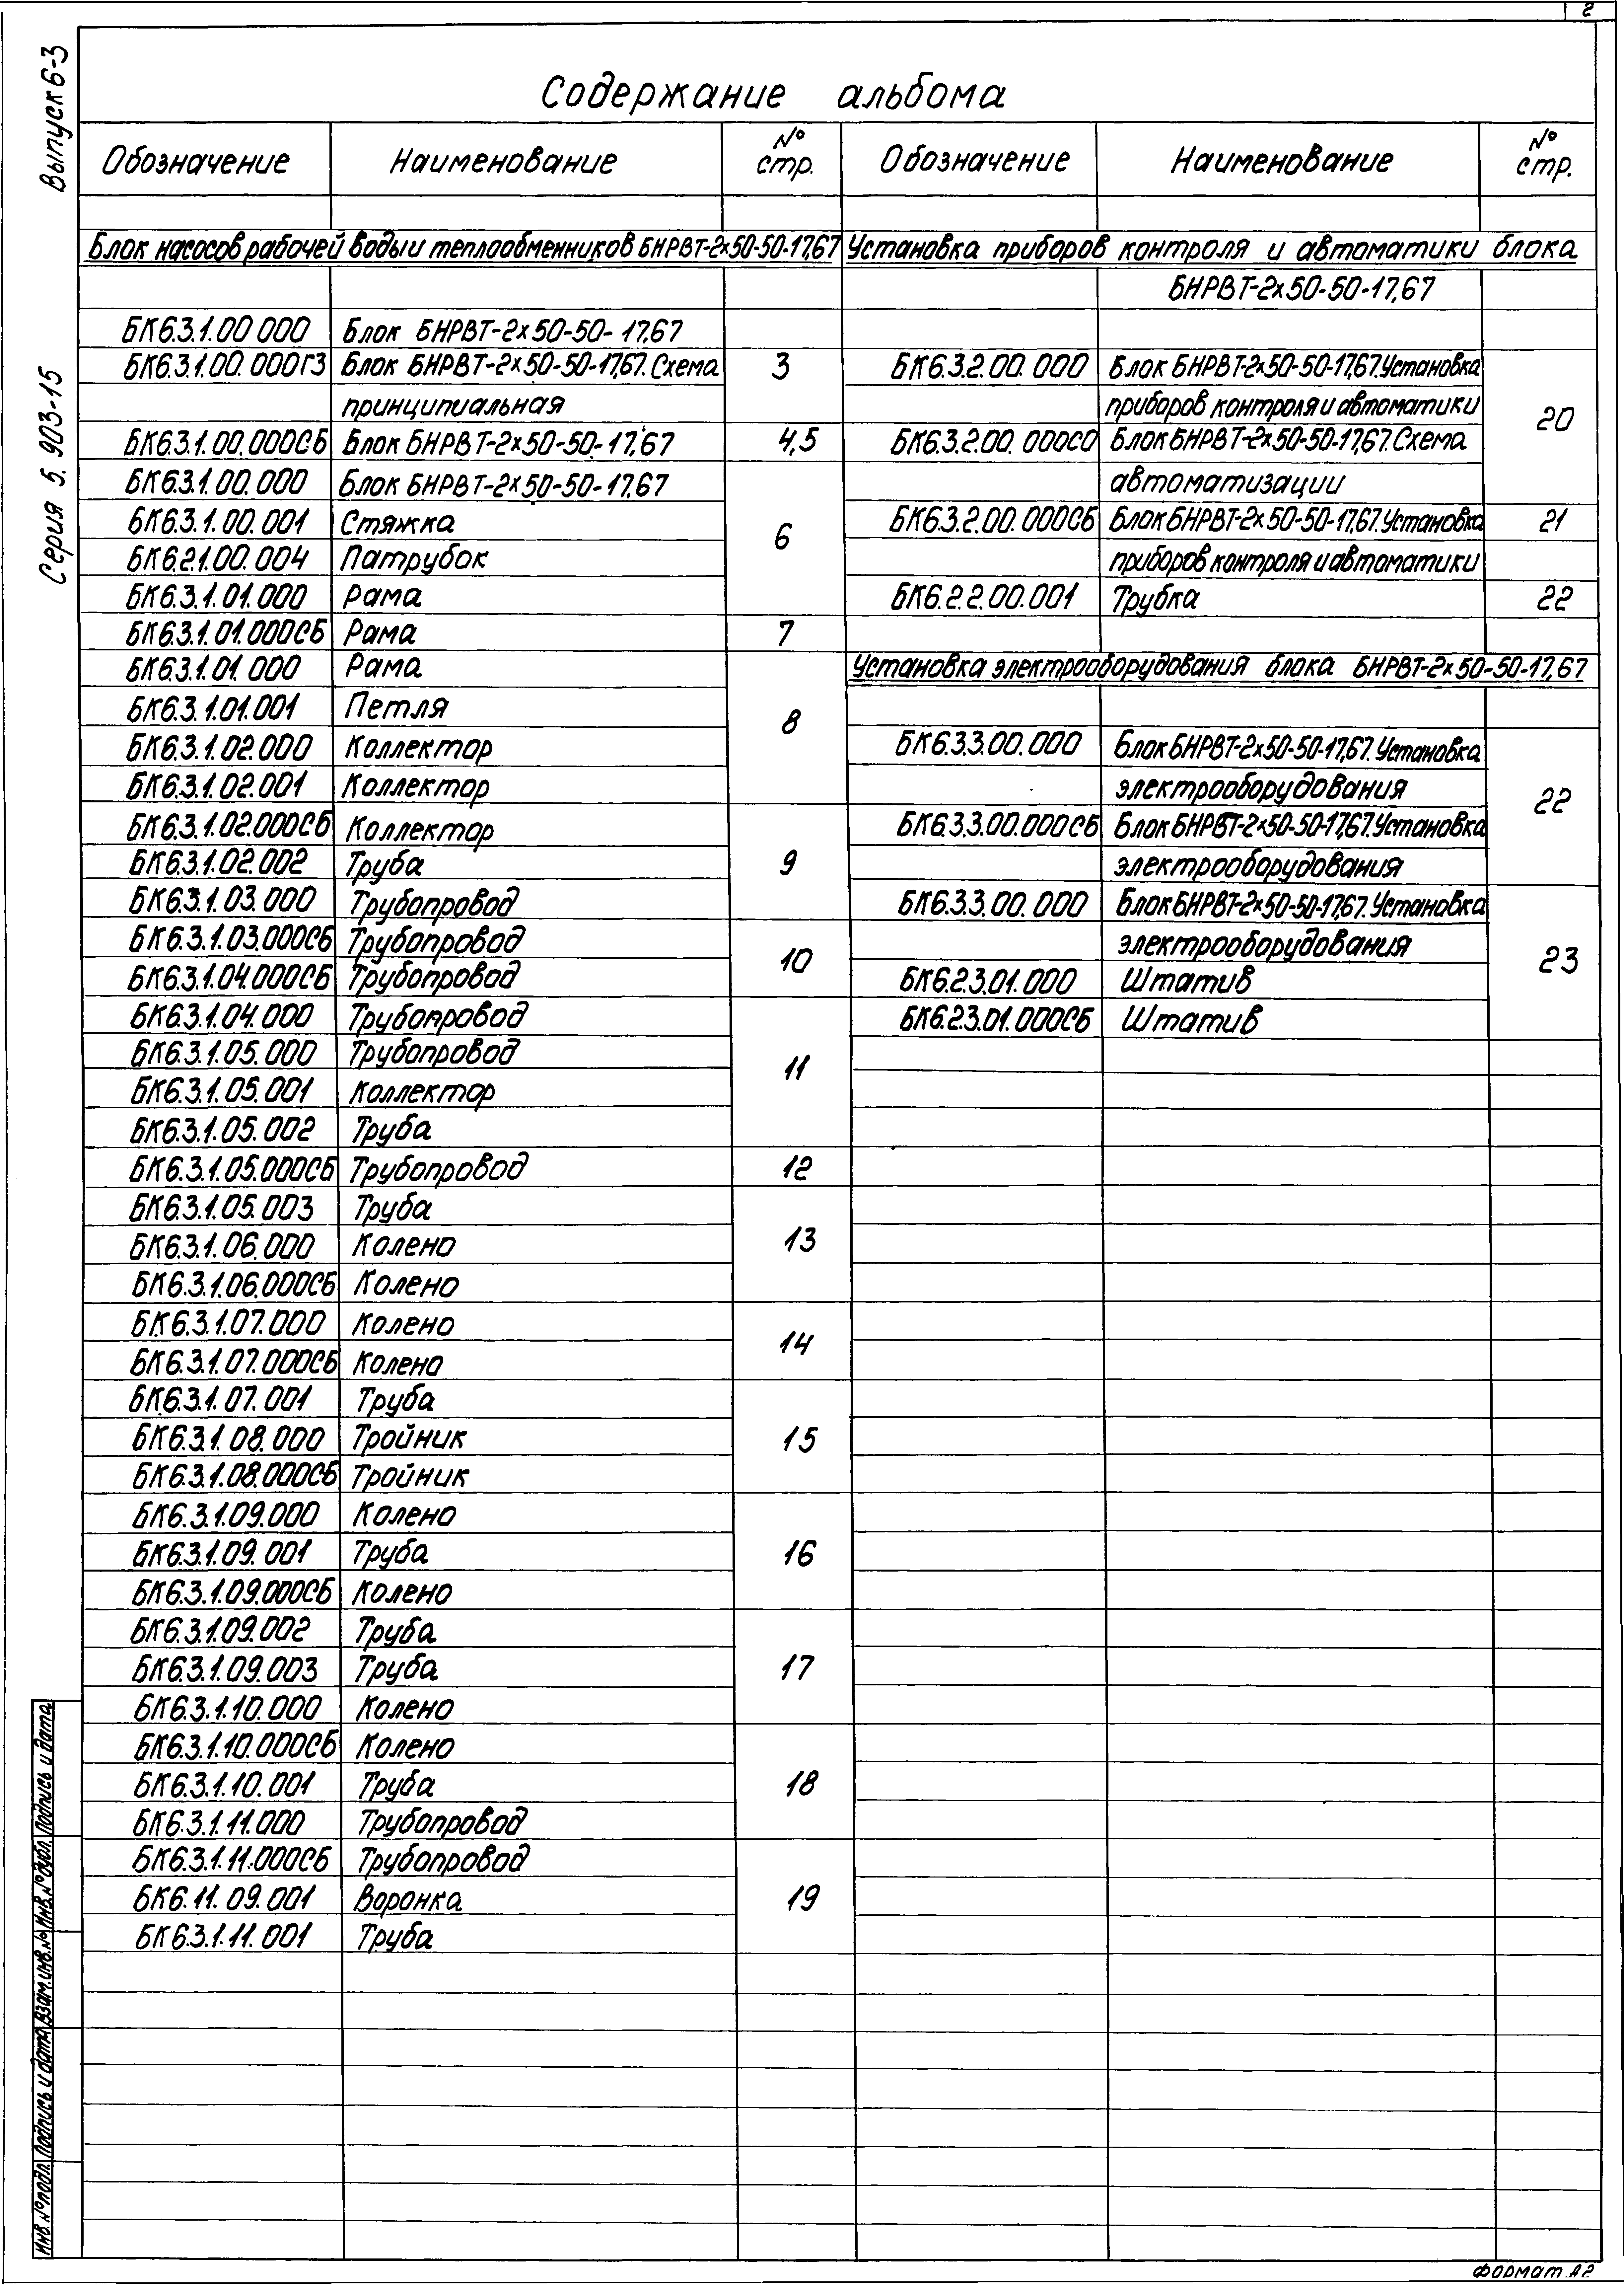 2
Выпуск 6-3
Серия 5.903-15
Содержание альбома
Обозначение Наименование № стр. Обозначение Наименование № стр.
Блок насосов рабочей воды и теплообменников БНРВТ-2х50-50-17,67
БК6.3.1.00 000 Блок БНРВТ-2х50-50-17,67
БК6.3.1.00.000Г3 Блок БНРВТ-2х50-50-17,67. Схема 3
принципиальная
БК6.3.1.00.000СБ Блок БНРВТ-2х50-50-17,67 4,5
БК6.3.1.00.000 Блок БНРВТ-2х50-50-17,67
БК6.3.1.00.001 Стяжка 6
БК6.2.1.00.004 Патрубок
БК6.3.1.01.000 Рама
БК6.3.1.01.000СБ Рама 7
БК6.3.1.01.000 Рама
БК6.3.1.01.001 Петля 8
БК6.3.1.02.000 Коллектор
БК6.3.1.02.001 Коллектор
БК6.3.1.02.000СБ Коллектор
БК6.3.1.02.002 Труба 9
БК6.3.1.03.000 Трубопровод
БК6.3.1.03.000СБ Трубопровод 10
БК6.3.1.04.000СБ Трубопровод
БК6.3.1.04.000 Трубопровод
БК6.3.1.05.000 Трубопровод 11
БК6.3.1.05.001 Коллектор
БК6.3.1.05.002 Труба
БК6.3.1.05.000СБ Трубопровод 12
БК6.3.1.05.003 Труба
БК6.3.1.06.000 Колено 13
БК6.3.1.06.000СБ Колено
БК.6.3.1.07.000 Колено 14
БК6.3.1.07.000СБ Колено
БК.6.3.1.07.001 Труба
БК6.3.1.08.000 Тройник 15
БК6.3.1.08.000СБ Тройник
БК6.3.1.09.000 Колено
БК6.3.1.09.001 Труба 16
БК6.3.1.09.000СБ Колено
БК6.3.1.09.002 Труба
БК6.3.1.09.003 Труба 17
БК6.3.1.10.000 Колено
БК6.3.1.10.000СБ Колено
БК6.3.1.10.001 Труба 18
БК6.3.1.11.000 Трубопровод
БК6.3.1.11.000СБ Трубопровод
БК6.11.09.001 Воронка 19
БК6.3.1.11.001 Труба
Установка приборов контроля и автоматики блока
БНРВТ-2х50-50-17,67
БК6.3.2.00.000 Блок БНРВТ-2х50-50-17,67. Установка
приборов контроля и автоматики 20
БК6.3.2.00.000СО Блок БНРВТ-2х50-50-17,67. Схема
автоматизации
БК6.3.2.00.000СБ Блок БНРВТ-2х50-50-17,67. Установка 21
приборов контроля и автоматики
БК6.2.2.00.001 Трубка 22
Установка электрооборудования блока БНРВТ-2х50-50-17,67
БК6.3.3.00.000 Блок БНРВТ-2х50-50-17,67. Установка
электрооборудования 22
БК6.3.3.00.000СБ Блок БНРВТ-2х50-50-17,67. Установка
электрооборудования
БК6.3.3.00.000 Блок БНРВТ-2х50-50-17,67. Установка
электрооборудования 23
БК6.2.3.01.000 Штатив
БК6.2.3.01.000СБ Штатив
Инв.№подл. Подпись и дата Взам.инв.№ Инв.№дубл. Подпись и дата
Формат А2